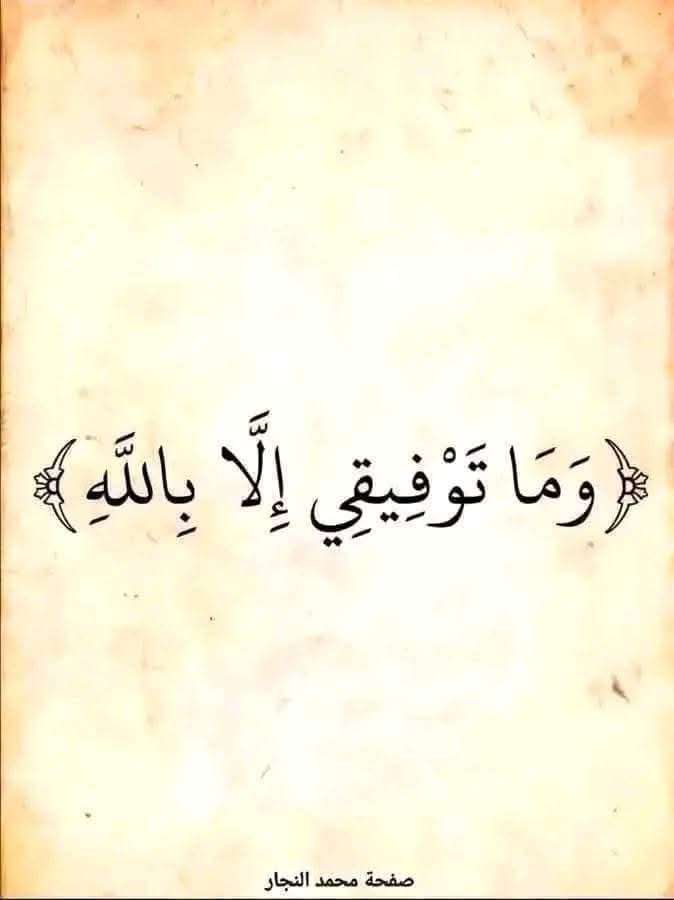 ﴿وَمَا تَوْفِيقِي إِلَّا بِاللَّهِ﴾
صفحة محمد النجار